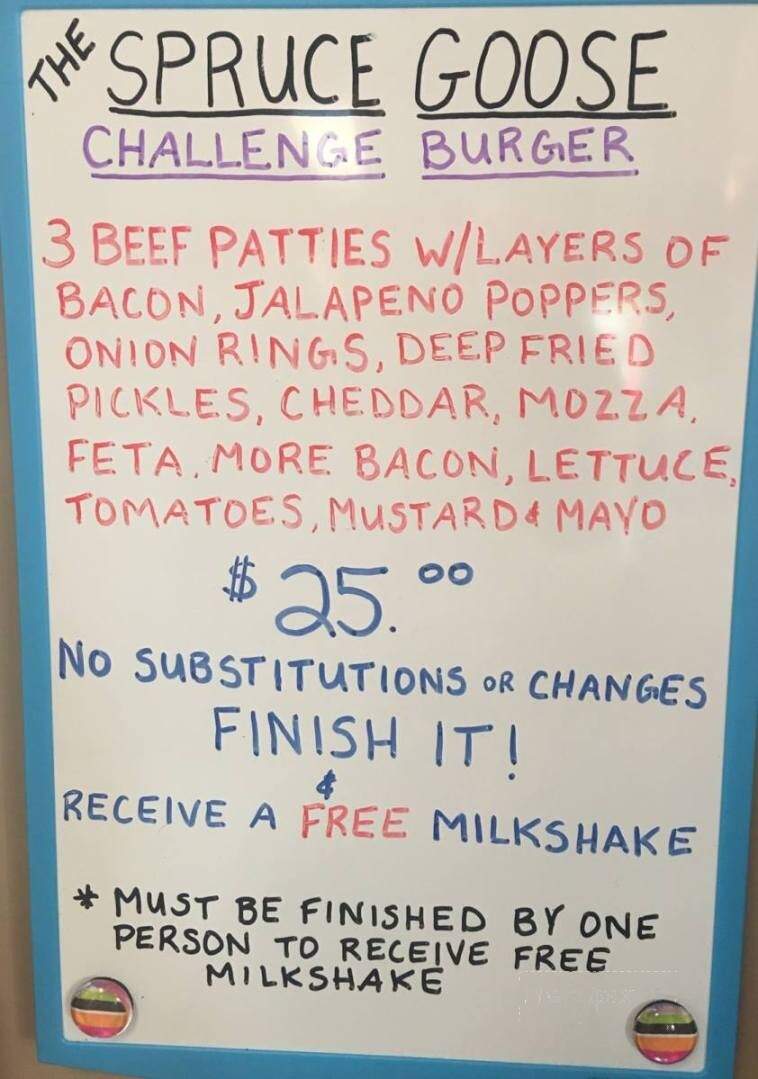 THE SPRUCE GOOSE
CHALLENGE BURGER
3 BEEF PATTIES W/LAYERS OF
BACON, JALAPENO POPPERS,
ONION RINGS, DEEP FRIED
PICKLES, CHEDDAR, MOZZA,
FETA, MORE BACON, LETTUCE,
TOMATOES, MUSTARD & MAYO
$25.00
NO SUBSTITUTIONS OR CHANGES
FINISH IT!
&
RECEIVE A FREE MILKSHAKE
* MUST BE FINISHED BY ONE
PERSON TO RECEIVE FREE
MILKSHAKE